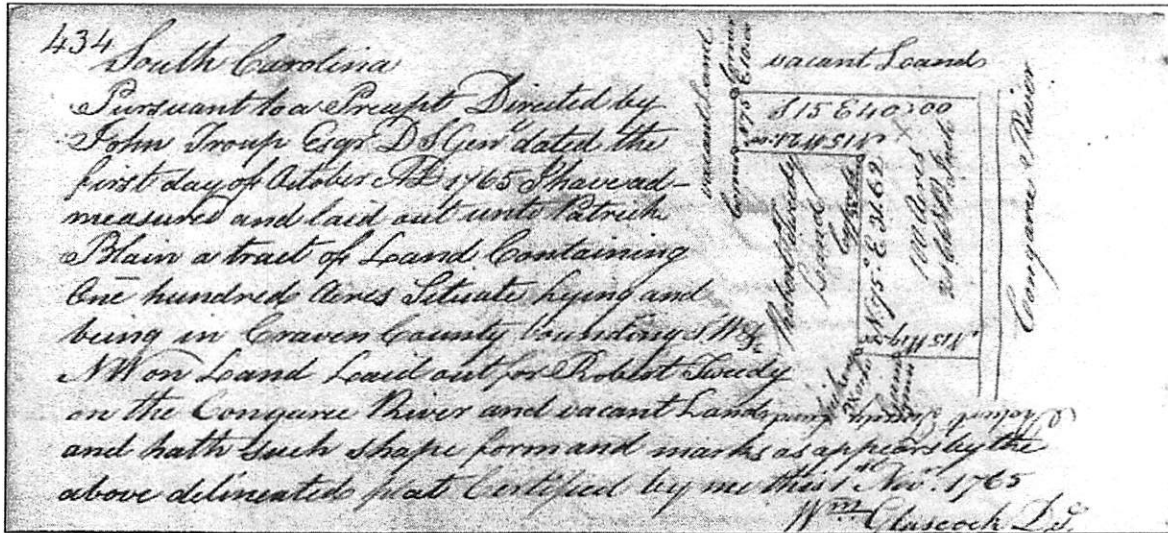 434
South Carolina
Pursuant to a Precept Directed by
John Troup Esqr D S Genl dated the
first day of October AD 1765 I have ad-
measured and laid out unto Patrick
Blain a tract of Land Containing
One hundred Acres Situate lying and
being in Craven County bounding SW &
NW on Land Laid out for Robert Tweedy
on the Congaree River and vacant Land
and hath such shape form and marks as appears by the
above delineated plat Certified by me this 1st Novr. 1765
Wm Glascock D.S.
vacant Land
vacant land
S 15 E 40:00
N 75
Robert Tweedy
Land
N 75 E 31.62
100 Acres
Congaree River
Robert Tweedy Land